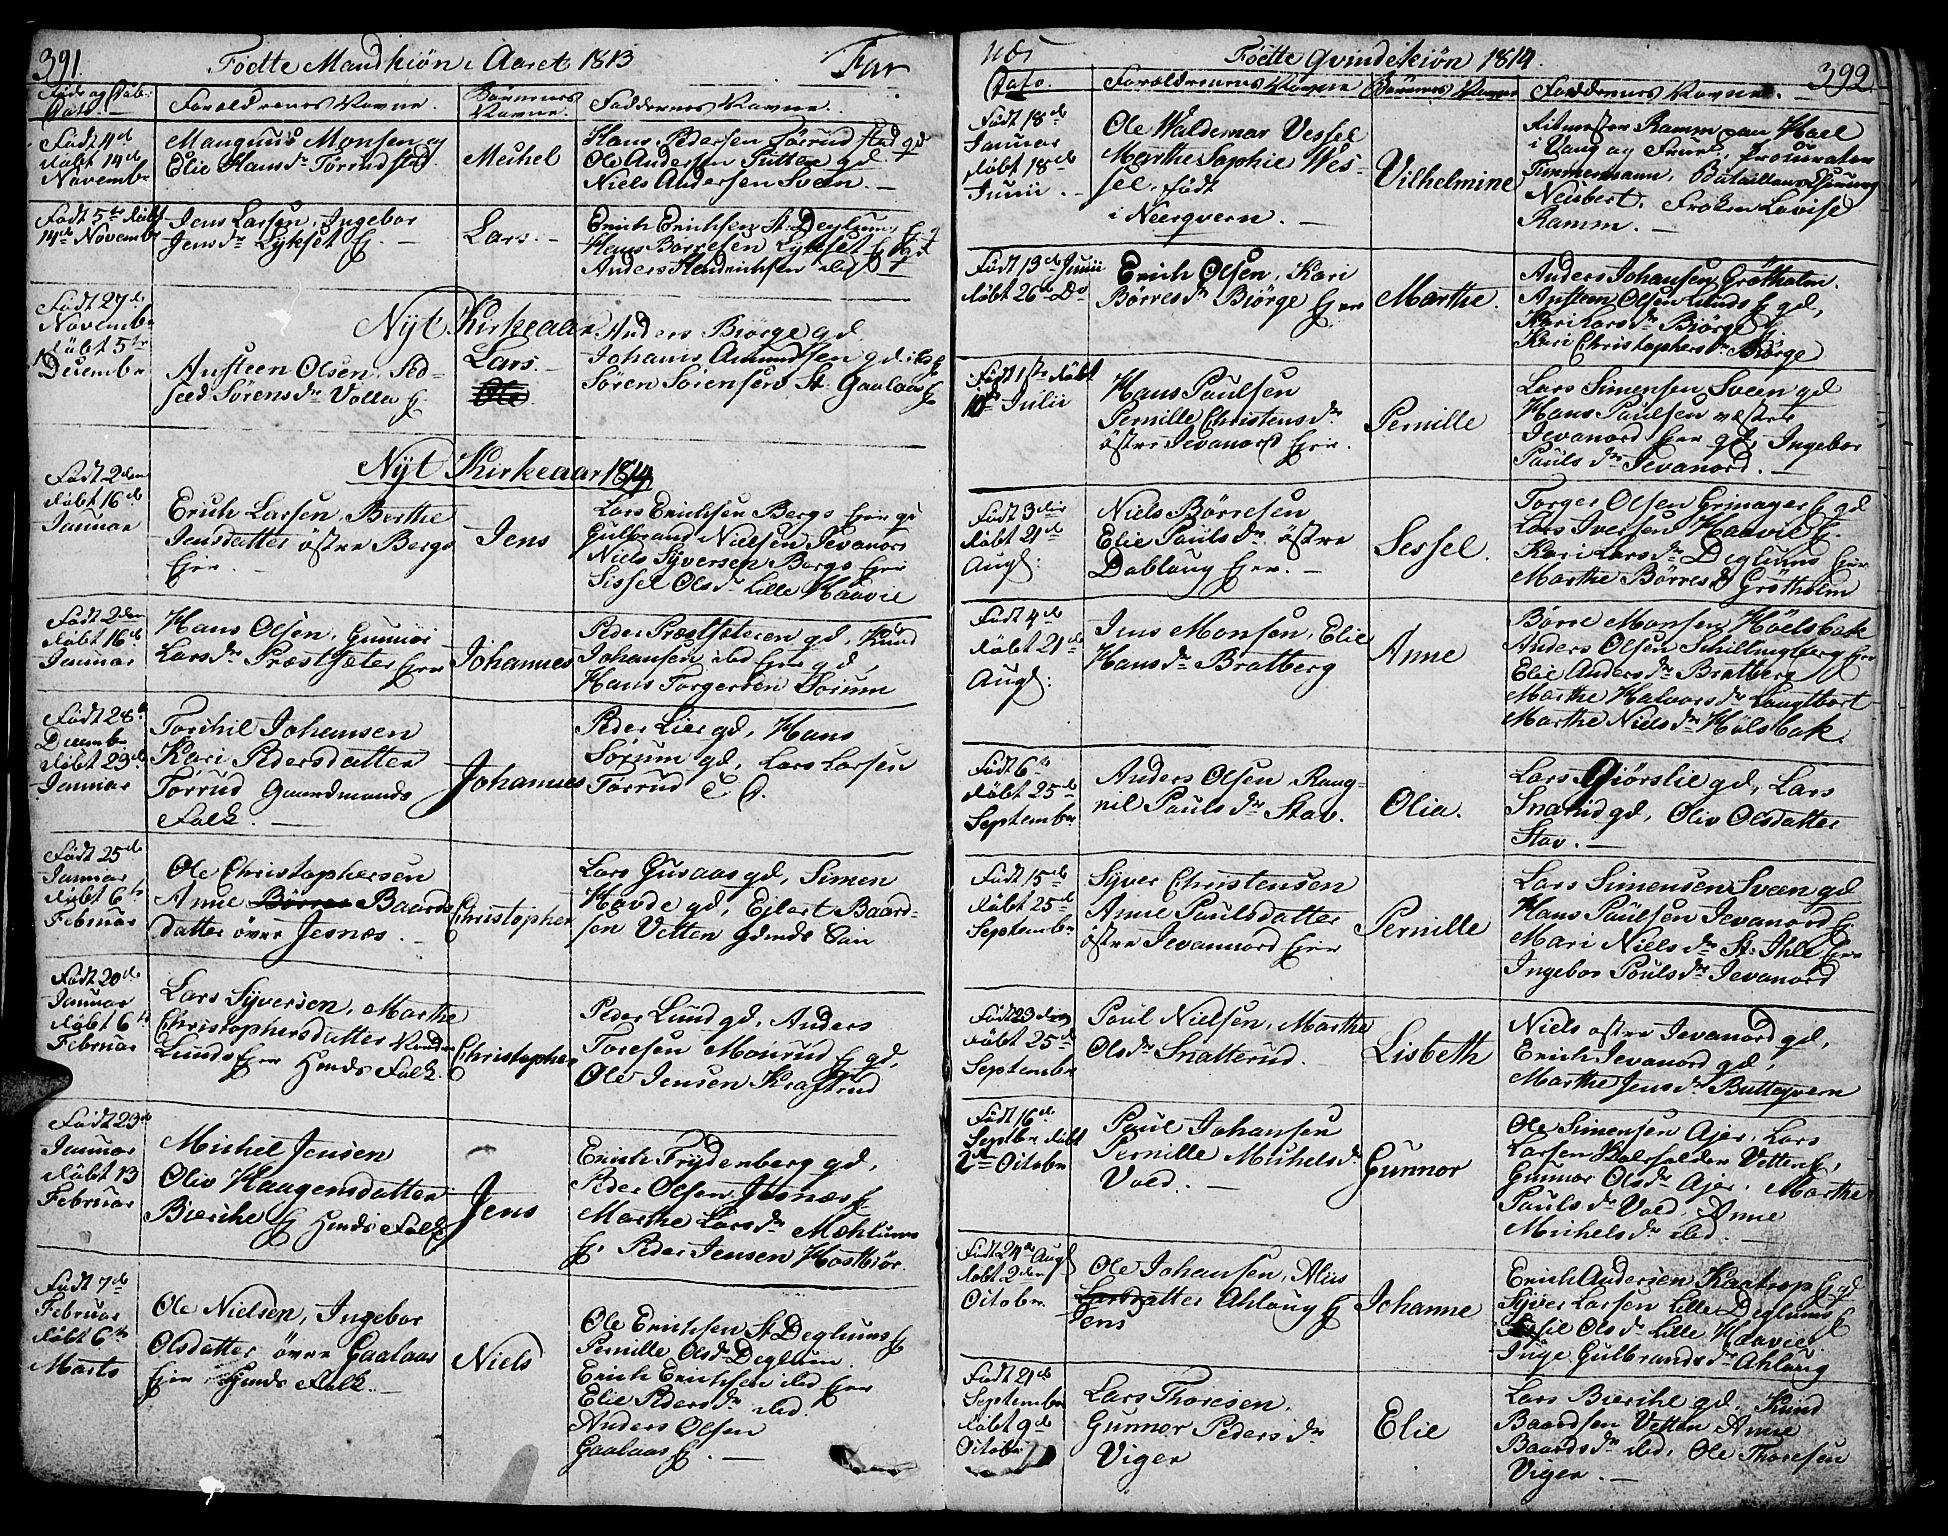 391.
Födte Mandkiøn i Aaret 1813
Før
Døbt
Dato.
Forældrenes Navne.
Börnenes
Navne.
Faddernes Navne.
Födt 4d
döbt 14d
Novembr
Mangnus Monsen og
Elie Hansdr Törrudstad.
Michel
Hans Pedersen Törrudstad gd
Ole Andersen Sutten gd
Niels Andersen Sveen. —
Födt 5te döbt
14d Novembr
Jens Larsen, Ingebor
Jensdr Lykset Ej. —
Lars. —
Erich Erichsen St. Deglum, Ej
Hans Börresen Lykset Ej
Anders Hendrichsen ibd
Födt 27d
Novembr
döbt 5te
Decembr
Nÿt Kirkeaar
Austeen Olsen, Sid-
sed Sörensdr Volla Ej
Lars. —
Ole
Anders Biørge gd
Johanis Amundsen gd
Sören Sörensen St. Gaalaas Ej
Nÿt Kirkeaar 1814
Födt 2den
döbt 16d
Januar
Erich Larsen, Berthe
Jensdatter östre Berge
Ejer. —
Jens
Lars Erichsen Berge Ejer gd
Gulbrand Nielsen Jevanord
Niels Sÿversen Berge Ejer
Sissel Olsdr Lille Haavie
Födt 2den
döbt 16d
Januar
Hans Olsen, Gunnor
Larsdr Præstsæter Ejer
Johannes
Peder Præstsæteren gd, Knud
Johansen ibd Ejer gd,
Hans Torgersen Sorum
Födt 28d
Decembr
döbt 23d
Januar
Torchil Johansen
Kari Pedersdatter
Törrud Gaardmands
Folk. —
Johannes
Peder Lier gd, Hans
Sörum gd, Lars Larsen
Törrud
Födt 25d
Januar,
döbt 6te
Februar
Ole Christophersen
Anne Börres Baards
datter över Jesnes. —
Christopher
Lars Gusaas gd, Simen
Hovde gd, Ejlert Baard-
sen Vetten
Födt 20d
Januar
döbt 6te
Februar
Lars Sÿversen, Marthe
Christophersdatter
Lunds Ejer Hends Folk.
Christopher
Peder Lund gd, Anders
Toresen Monrud Ej gd,
Ole Jensen Kraftrud
Födt 23d
Januar
döbt 13
Februar
Michel Jensen
Oliv Haagensdatter
Bierche Ej Hends Folk
Jens
Erich Frÿdenberg gd,
Peder Olsen Jesnæs Ej
Marthe Larsdr Mæhlums
Ej. Peder Jensen Hostbiör.
Födt 7d
Februar
döbt 6te
Marts
Ole Nielsen, Ingebor
Olsdatter övre Gaalaas
Ejer Hends Folk. —
Niels
Ole Erichsen St. Deglums Ej
Pernille Olsdr Deglum.
Erich Erichsen ibd Ejer
Elie Pedersdr ibd.
Anders Olsen
Gaalaas Ej. —
Födte Qvindekiön 1814.
392.
Dato.
Forældrenes Navne
Börnenes Navne
Faddernes Navne. —
Födt 18d
Januar
döbt 18d
Junii. —
Ole Waldemar Vessel
Marthe Sophie Wes-
sel, födt
i Neerqvern. —
Vilhelmine
Ritmester Ramm paa Hoel
i Vang og Frue, Procurator
Timmermann, Bataillons Chirurg
Neubert, Froken Lovise
Ramm. —
Födt 13d Junii
döbt 26d Do
Erich Olsen, Kari
Börresdr Biörge Ejer
Marthe.
Anders Johansen Grötholm.
Austeen Olsen Lunds Ej gd,
Kari Larsdr Biörge Ej
Kari Christophersdr Biörge
Födt 1ste döbt
10d Julii
Hans Paulsen
Pernille Christensdr
östre Jevanord Ejer.
Pernille
Lars Simensen Sveen gd
Hans Paulsen vestre
Jevanord Ejer gd, Ingebor
Paulsdr Jevanord. —
Födt 3die
döbt 21d
Aug:
Niels Börresen
Elie Paulsdr östre
Dablaug Ejer. —
Sessel.
Torger Olsen Grinager Ej gd
Lars Iversen Haavie Ej.
Kari Larsdr Deglums Ejer
Marthe Börresdr Grötholm
Födt 4d
döbt 21d
Aug:
Jens Monsen, Elie
Hansdr Bratberg
Anne
Börre Monsen Höelsbak
Anders Olsen Schillingberg Ejer
Elie Andersdr Bratberg
Marthe Halvorsdr Langtbort
Marthe Nielsdr Hölsbak.
Födt 6te
döbt 25d
Septembr
Anders Olsen Raug-
nil Paulsdr Stav.
Olia.
Lars Giörslie gd, Lars
Snarud gd, Oliv Olsdatter
Stav. —
Födt 15d
döbt 25d
Septembr
Sÿver Christensen
Anne Paulsdatter
östre Jevannord Ejer
Pernille
Lars Simensen Sveen gd
Hans Paulsen Jevanord Ej
Mari Nielsdr St. Ihle Ejer
Ingebor Poulsdr Jevanord
Födt 23den
döbt 25d
Septembr
Paul Nielsen, Marthe
Olsdr Snatterud.
Lisbeth
Niels östre Jevanord gd,
Erich Jevanord gd,
Marthe Jensdr Butteqvern
Födt 16d
Septbr döbt
2den Octobr
Paul Johansen
Pernille Michelsdr
Vold. —
Gunnor
Ole Simensen Ajer, Lars
Larsen Vetten Ej,
Gunnor Olsdr Ajer, Marthe
Paulsdr Vold, Anne
Michelsdr ibd. —
Födt 24d Aug
döbt 2den
Octobr.
Ole Johansen, Alis
Larsdatter Ahlaug Ej
Jens
Johanne
Erich Andersen Kaatrop Ej gd
Sÿver Larsen Lille Deglums Ej
Sissil Olsdr Lille Haavie
Inge Gulbrandsdr Ahlaug
Födt 21d
Septembr
döbt 9d
Octobr
Lars Thoresen,
Gunnor Pedersdr
Viger
Elie
Lars Bierche gd, Knud
Baardsen Vetten Anne
Baardsdr ibd, Ole Thoresen
Viger. —